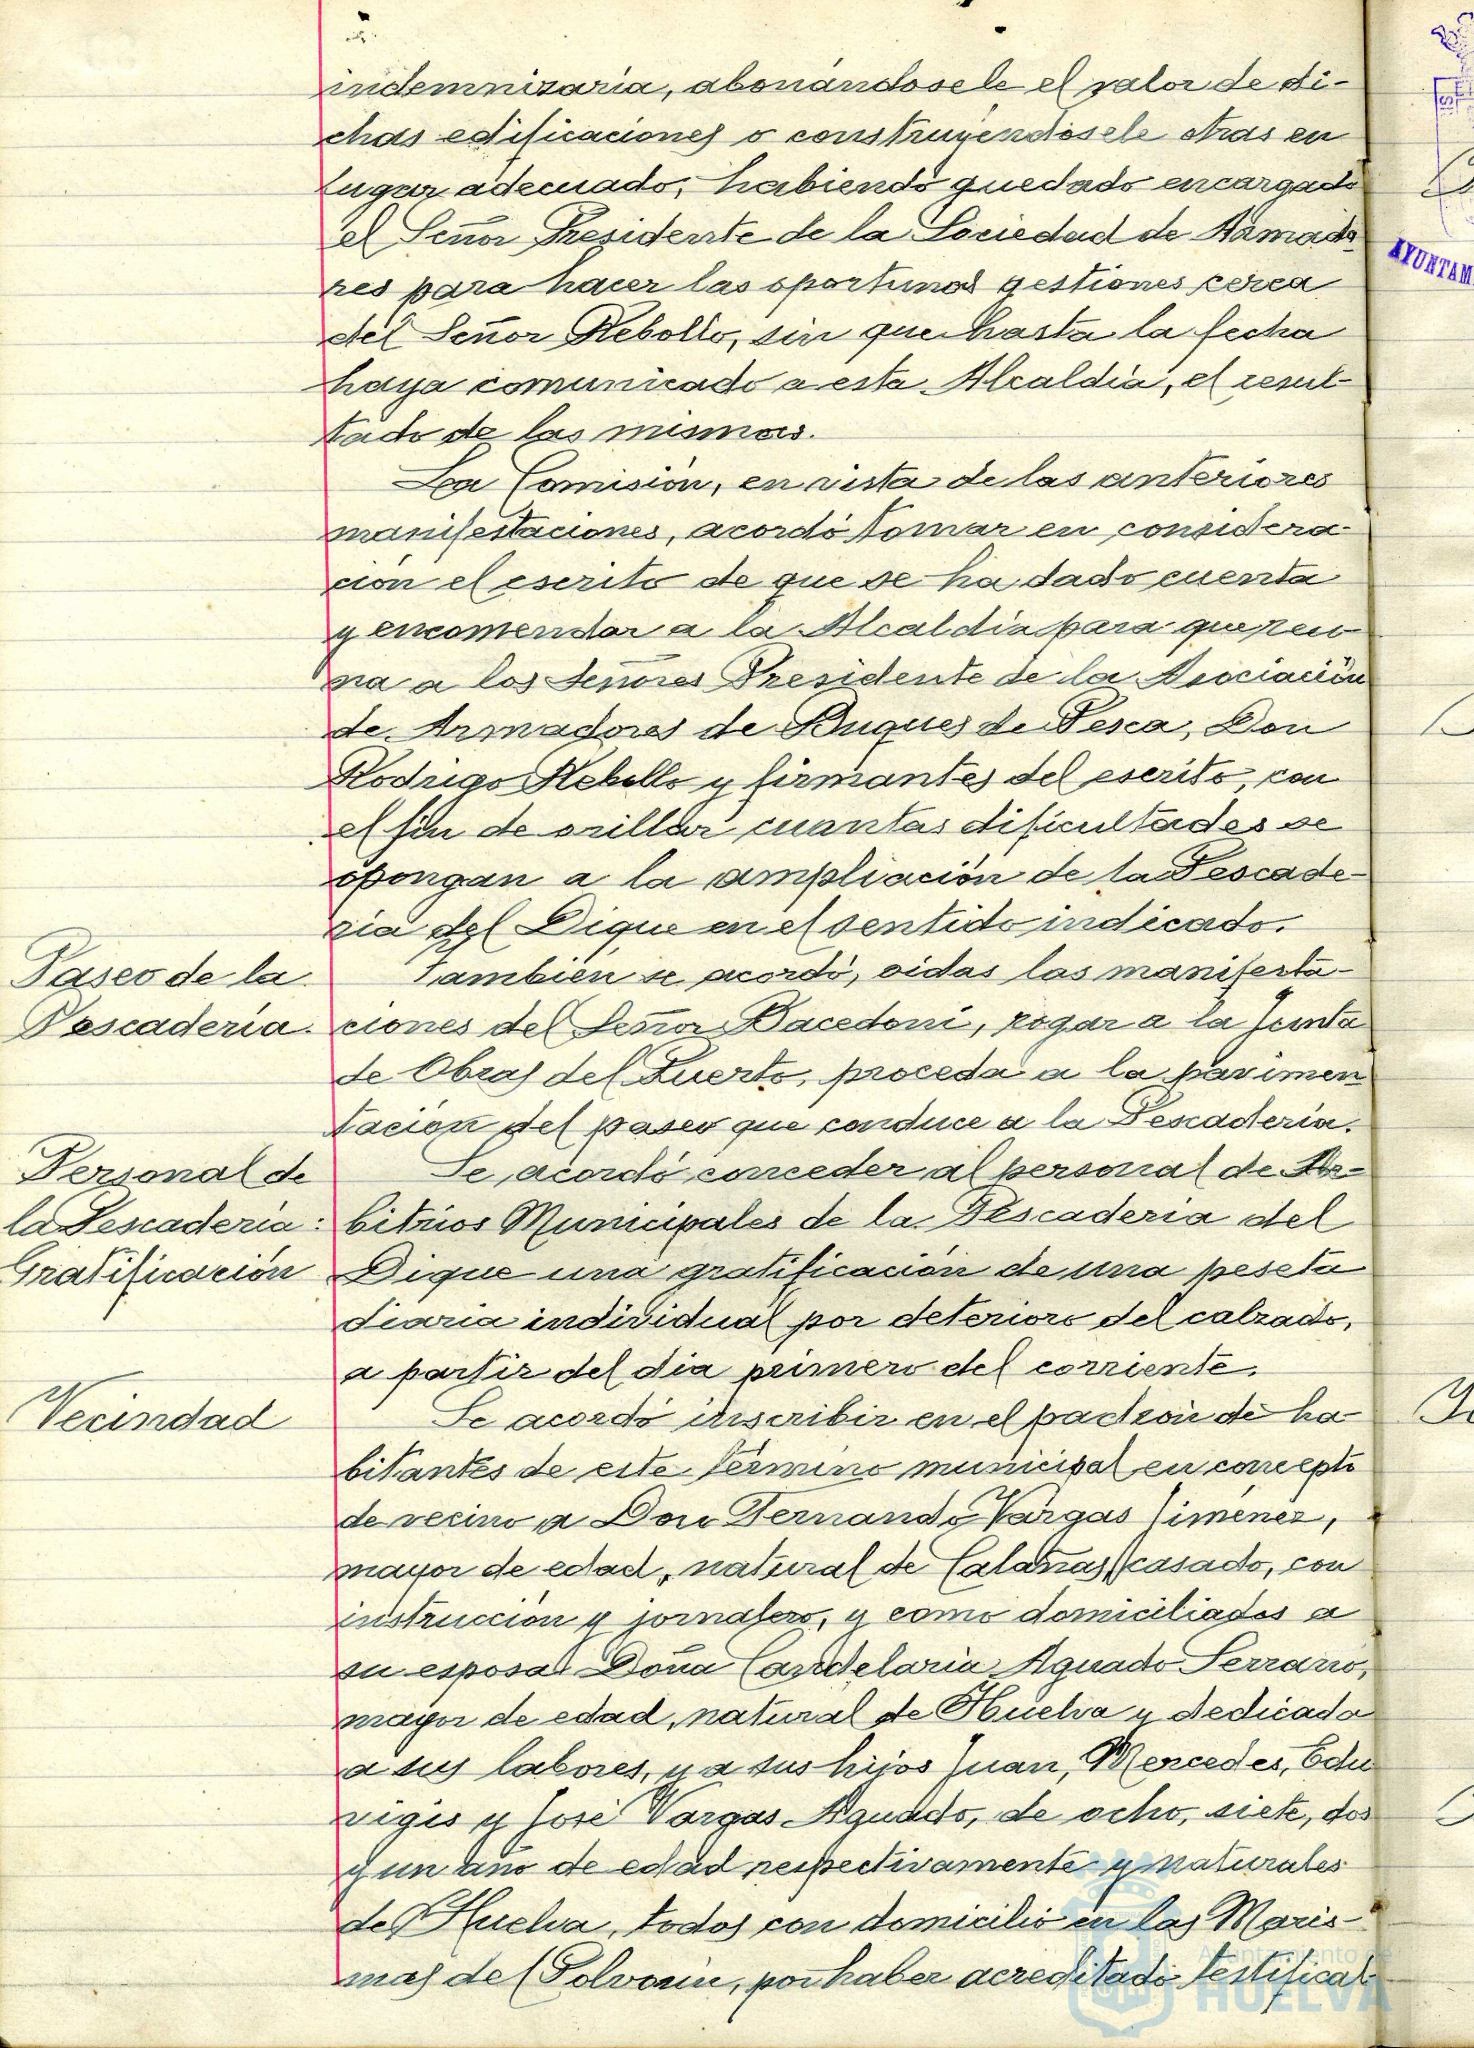 indemnizaria, abonándosele el valor de di-
chas edificaciones o construyéndosele otras en
lugar adecuado, habiendo quedado encargado
el Señor Presidente de la Sociedad de Armado
res para hacer las oportunas gestiones cerca
del Señor Rebollo, sin que hasta la fecha
haya comunicado a esta Alcaldía, el resul-
tado de las mismas.
La Comisión, en vista de las anteriores
manifestaciones, acordó tomar en considera-
ción el escrito de que se ha dado cuenta
y encomendar a la Alcaldía para que reu-
na a los Señores Presidente de la Asociación
de Armadores de Buques de Pesca, Don
Rodrigo Rebollo y firmantes del escrito, con
el fin de orillar cuantas dificultades se
opongan a la ampliación de la Pescade-
ria del Dique en el sentido indicado.
Paseo de la
Pescadería.
También se acordó, oidas las manifesta-
ciones del Señor Bacedoni, rogar a la Junta
de Obras del Puerto, proceda a la pavimen
tación del paseo que conduce a la Pescadería.
Personal de
la Pescadería:
Gratificación
Se acordó conceder al personal de Ar-
bitrios Municipales de la Pescaderia del
Dique una gratificación de una peseta
diaria individual por deterioro del calzado,
a partir del dia primero del corriente.
Vecindad
Se acordó inscribir en el padrón de ha-
bitantes de este término municipal en concepto
de vecino a Don Fernando Vargas Jiménez,
mayor de edad, natural de Calañas, casado, con
instrucción y jornalero, y como domiciliados a
su esposa Doña Candelaria Aguado Serrano,
mayor de edad, natural de Huelva y dedicada
a sus labores, y a sus hijos Juan, Mercedes, Edu
vigis y José Vargas Aguado, de ocho, siete, dos
y un año de edad respectivamente y naturales
de Huelva, todos con domicilio en las Maris-
mas del Polvorín, por haber acreditado testifical
AYUNTAM
Ayuntamiento de
HUELVA